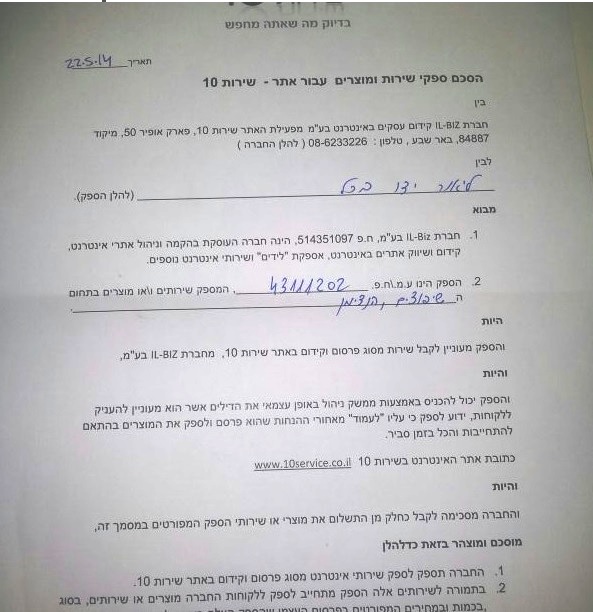 בדיוק מה שאתה מחפש
תאריך 22.5.14
הסכם ספקי שירות ומוצרים עבור אתר - שירות 10
בין
חברת IL-BIZ קידום עסקים באינטרנט בע"מ מפעילת האתר שירות 10, פארק אופיר 50, מיקוד
84887, באר שבע, טלפון : 08-6233226 ( להלן החברה )
לבין
ליאור ידו בכל (להלן הספק).
מבוא
1. חברת IL-Biz בע"מ, ח.פ 514351097, הינה חברה העוסקת בהקמה וניהול אתרי אינטרנט,
קידום ושיווק אתרים באינטרנט, אספקת "לידים" ושירותי אינטרנט נוספים.
2. הספק הינו ע.מ\ח.פ. 43111202, המספק שירותים ו\או מוצרים בתחום
ה שיפוצים, הנדימן.
היות
והספק מעוניין לקבל שירות מסוג פרסום וקידום באתר שירות 10, מחברת IL-BIZ בע"מ,
והיות
והספק יכול להכניס באמצעות ממשק ניהול באופן עצמאי את הדילים אשר הוא מעוניין להעניק
ללקוחות, ידוע לספק כי עליו "לעמוד" מאחורי ההנחות שהוא פרסם ולספק את המוצרים בהתאם
להתחייבות והכל בזמן סביר.
כתובת אתר האינטרנט בשירות 10 www.10service.co.il
והיות
והחברה מסכימה לקבל כחלק מן התשלום את מוצרי או שירותי הספק המפורטים במסמך זה,
מוסכם ומוצהר בזאת כדלהלן
1. החברה תספק לספק שירותי אינטרנט מסוג פרסום וקידום באתר שירות 10.
2. בתמורה לשירותים אלה הספק מתחייב לספק ללקוחות החברה מוצרים או שירותים, בסוג
,בכמות ובמחירים המפורטים